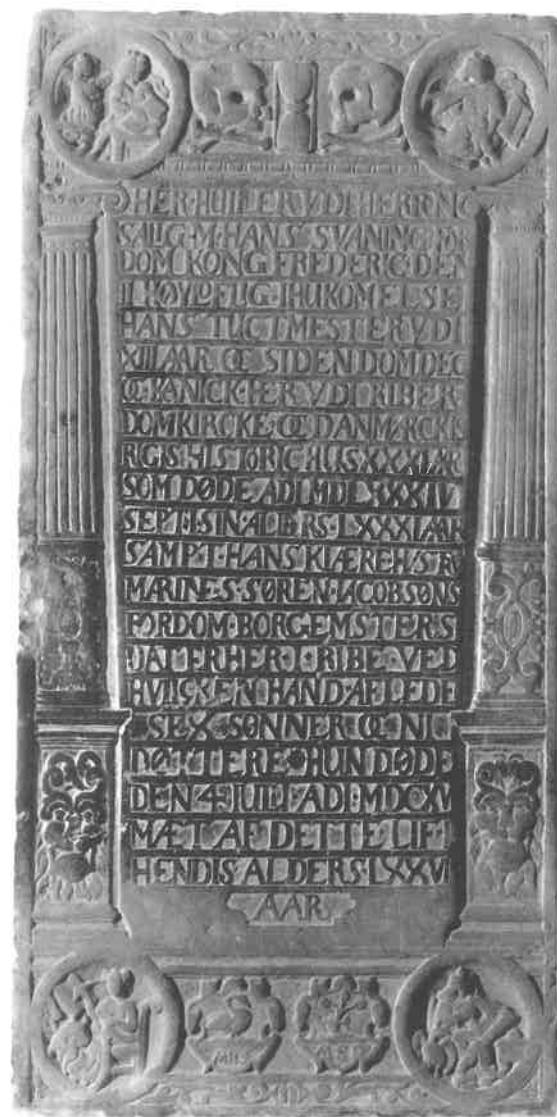 HER·HUILER VDI HERRN
SALIG·M·HANS SVANING
DOM KONG FREDERIC·DEN
II HØYLOFLIG·IHUKOMELSE
HANS TUCTMESTER VDI
XIII AAR OC SIDEN DOM DEG
OC KANICK·HER VDI RIBER
DOMKIRCKE·OC DANMARCKIS
RIGIS HISTORICHUS XXXI AR
SOM DØDE·ADI MDLXXXIV
SEPT·I·SIN·ALDERS·LXXXI AAR
SAMPT·HANS KIÆRE HSTRV
MARINE·S·SØREN·IACOBSØNS
FORDOM·BORGEMSTER·S
DATER HER I RIBE·VED
HVILCKEN HAND·AFLEDE
SEX SØNNER OC NI
DØTTERE HUN DØDE
DEN 4 IULI·ADI·MDCXV
MÆT AF DETTE LIF I
HENDIS ALDERS·LXXVI
AAR
MHS